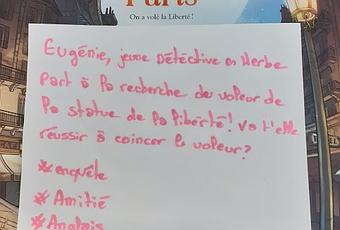 Paris
On a volé la Liberté !
Eugénie, jeune Détective en Herbe
part à la recherche du voleur de
la statue de la liberté! va t'elle
réussir à coincer le voleur?
* enquête
* Amitié
* Anglais